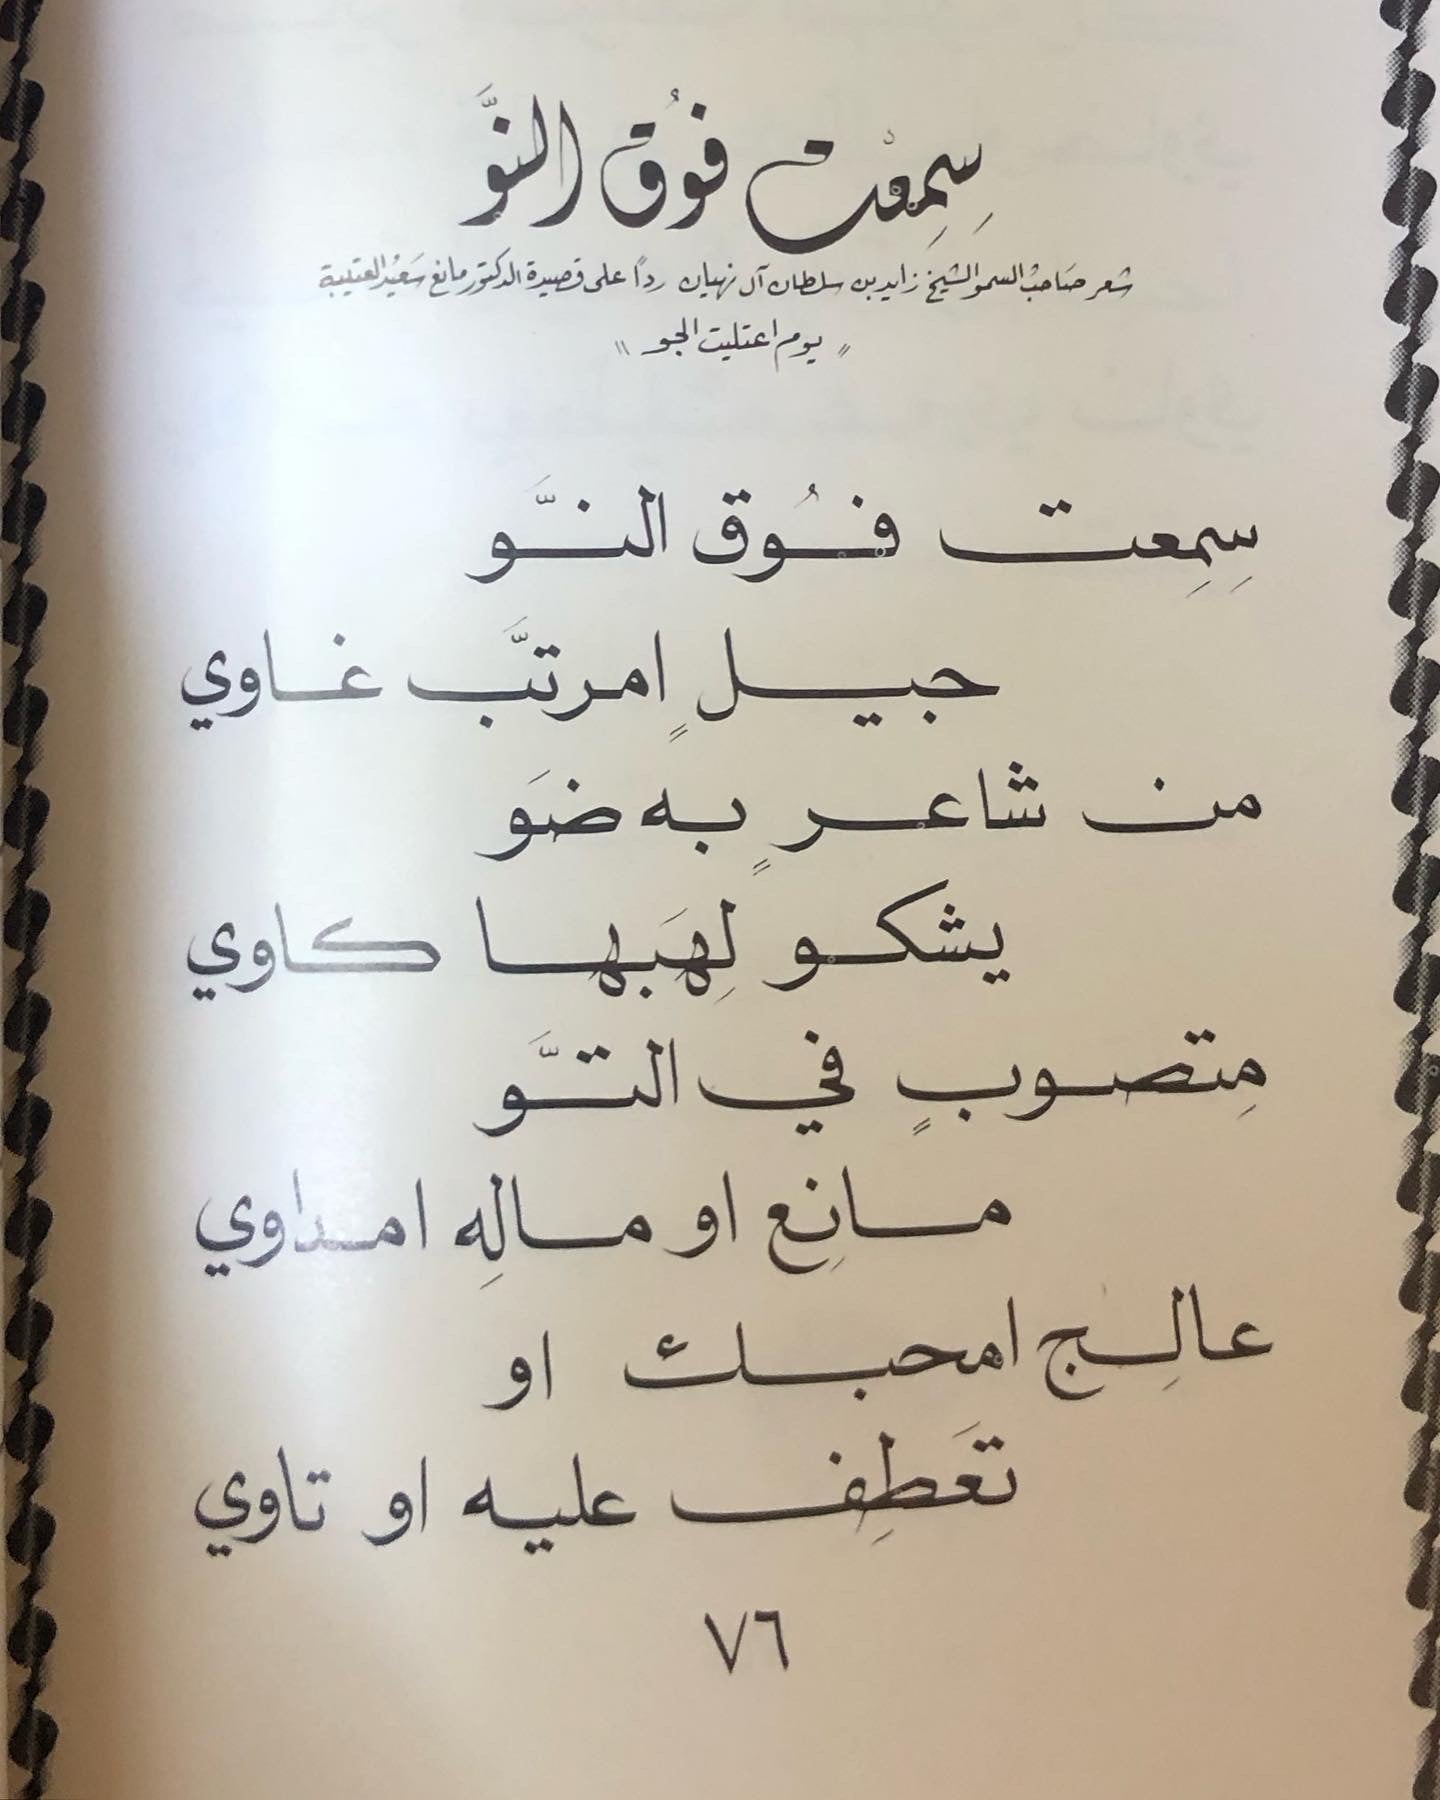 سِمِعْت فُوق النَّو
شعر صَاحبْ السمو الشيخ زايد بن سلطان آل نهيان رداً على قصيدة الدكتور مانع سَعيْد العتيبة
" يوم اعتليت الجو "
سِمِعت فُوق النَّو
جيلٍ امرتَّب غاوي
من شاعرٍ به ضَو
يشكو لِهَبها كاوي
مِتصوبٍ في التَّو
مانِع او مالِه امداوي
عالِج امحبك او
تعَطِف عليه او تاوي
٧٦